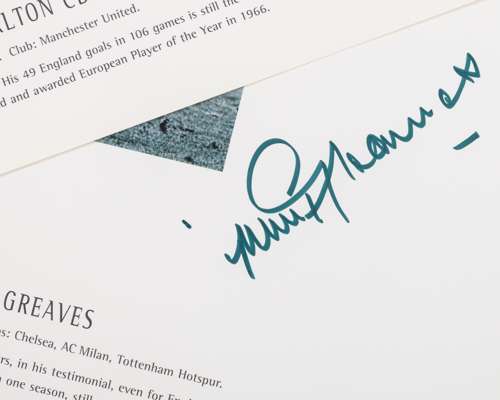 ALTON C
Club: Manchester United.
His 49 England goals in 106 games is still the
d and awarded European Player of the Year in 1966.
GREAVES
s: Chelsea, AC Milan, Tottenham Hotspur.
rs, in his testimonial, even for
one season, still